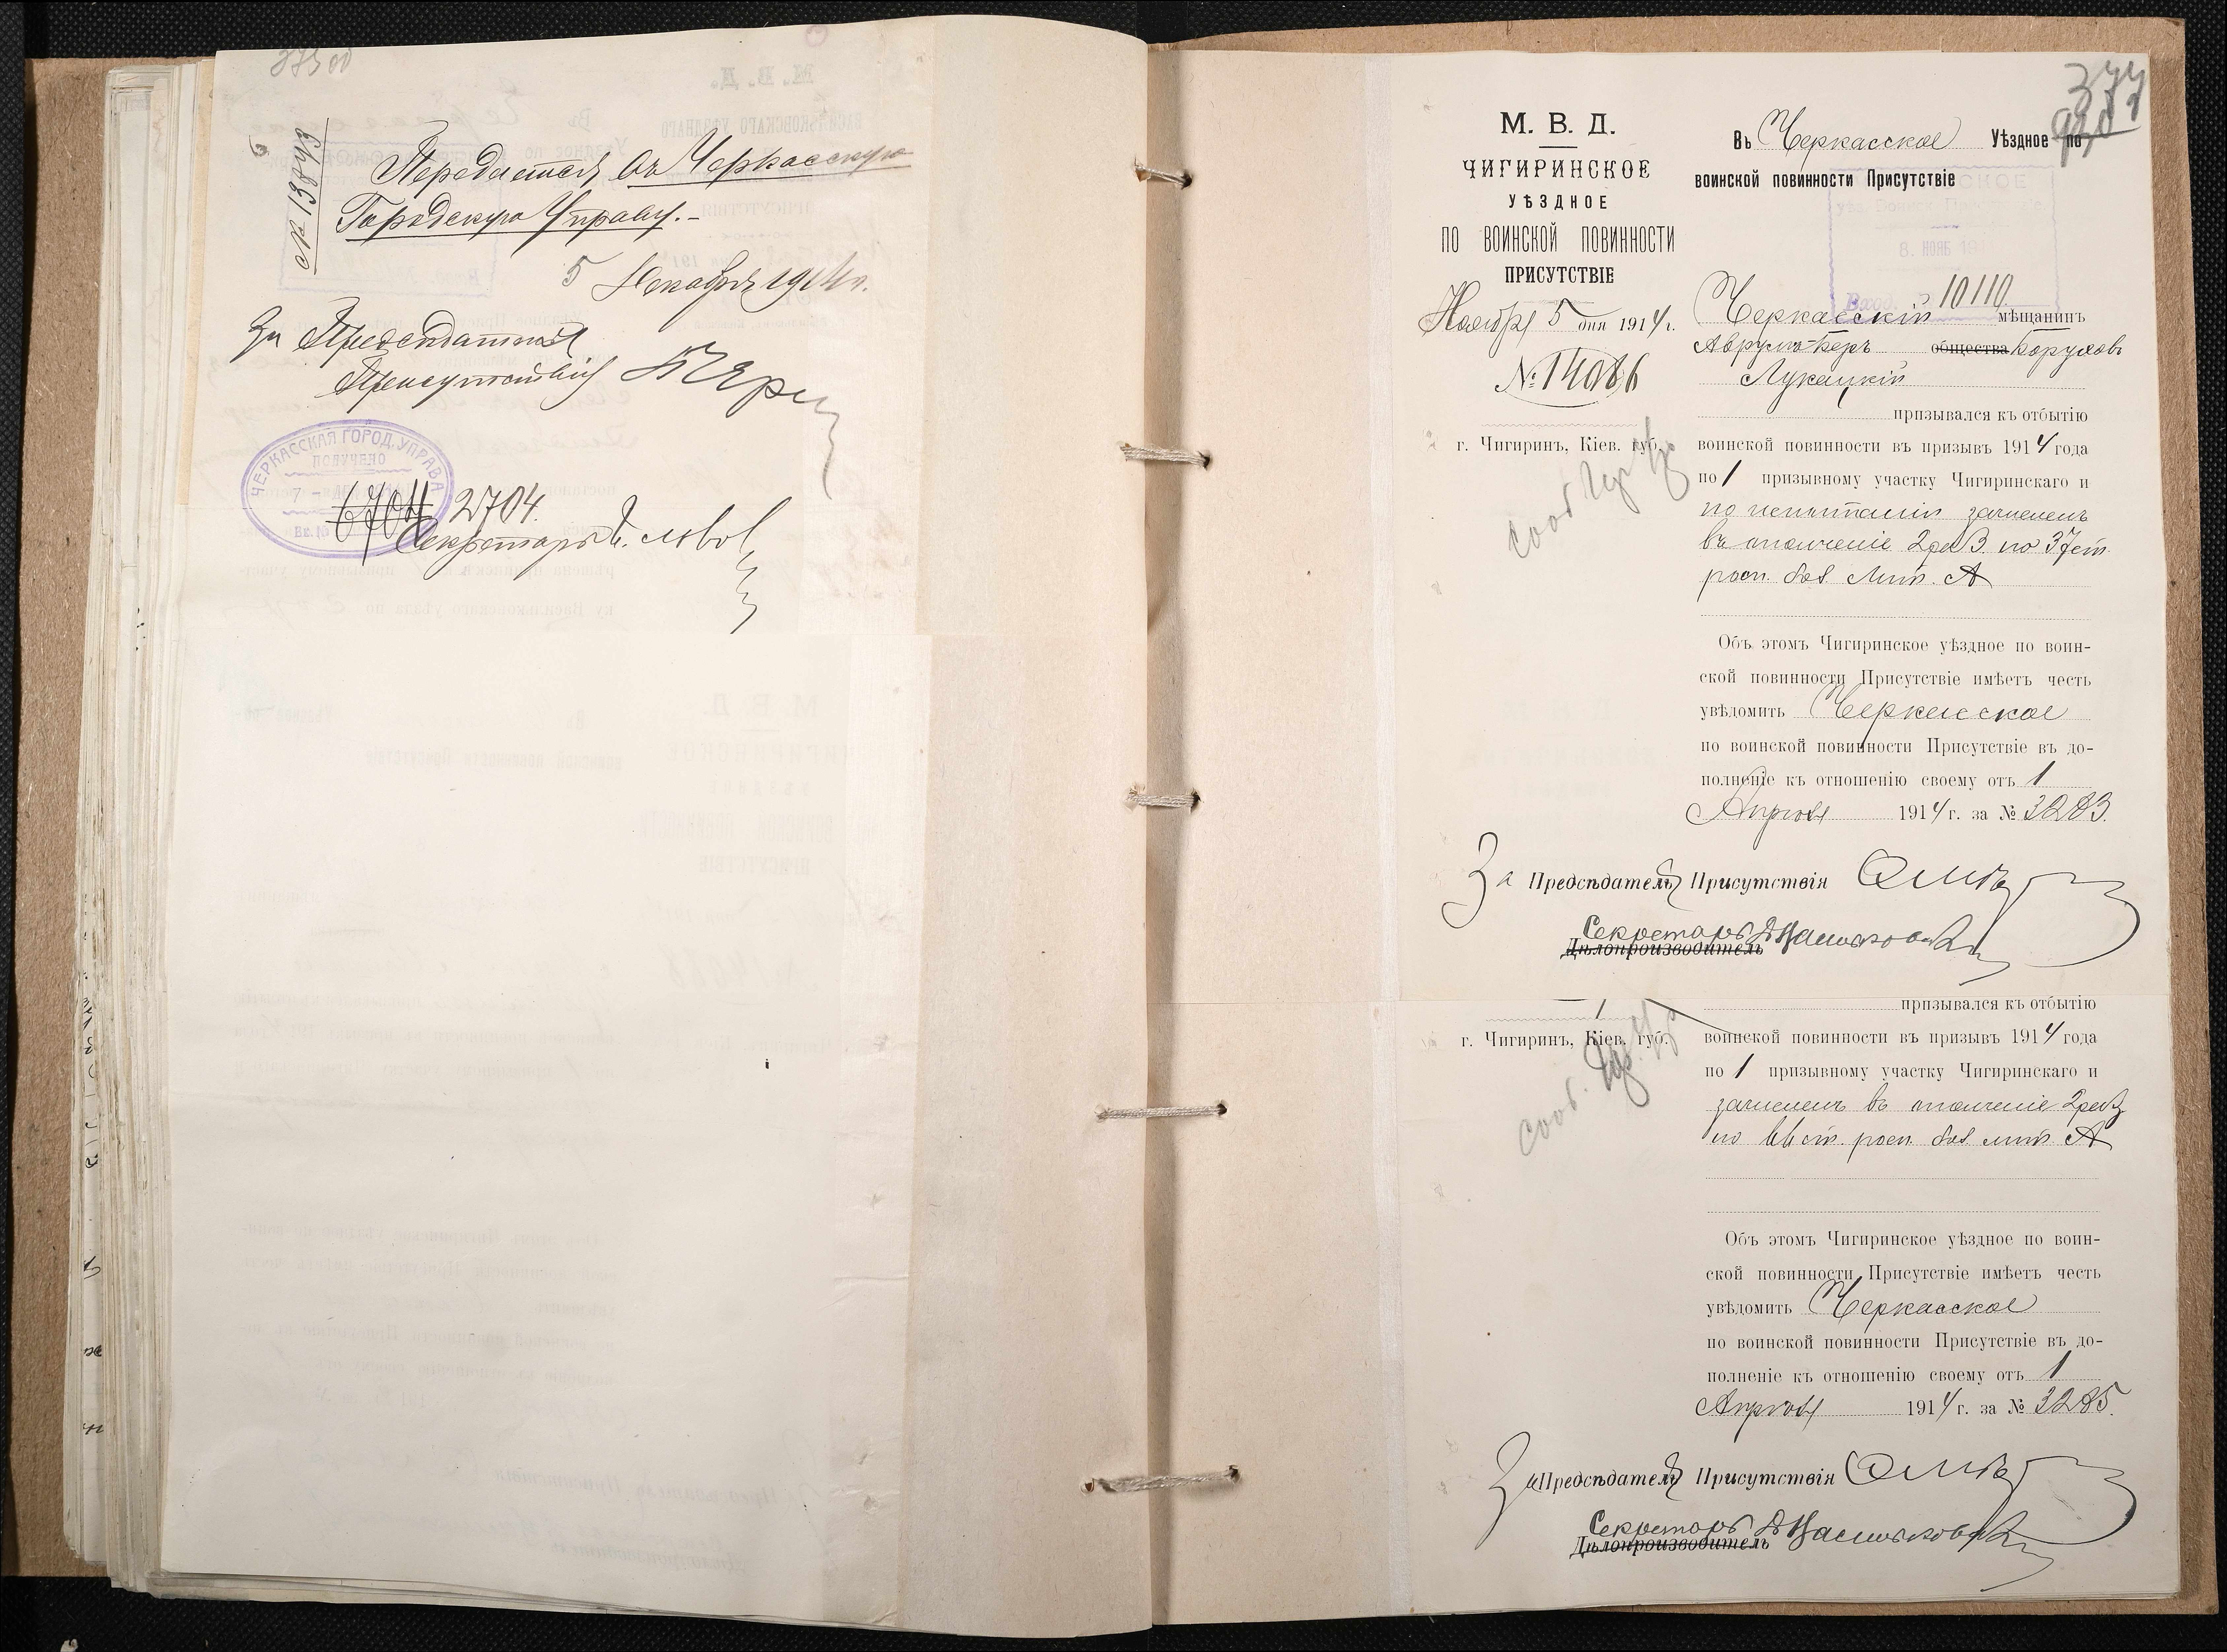 № 13893
Передается въ Черкасскую
Городскую Управу.-
5 Декабря 1914 г.
За Председателя
Присутствія
ЧЕРКАССКАЯ ГОРОД. УПРАВА
ПОЛУЧЕНО
7
Вх. №
6704 2704.
Секретарь
377
М. В. Д.
ЧИГИРИНСКОЕ
УѢЗДНОЕ
ПО ВОИНСКОЙ ПОВИННОСТИ
ПРИСУТСТВІЕ
Ноября 5 дня 1914 г.
№ 14086
г. Чигиринъ, Кіев. губ.
Въ Черкасское Уѣздное по
воинской повинности Присутствіе
8. НОЯБ 191
Вход. 10110
Черкасскій мѣщанинъ
Аврумъ-Беръ общества Боруховъ
Лукацкій
призывался къ отбытію
воинской повинности въ призывъ 1914 года
по 1 призывному участку Чигиринскаго и
по испытаніи зачисленъ
въ ополченіе 2 раз. по 37 ст.
росп. бол. лит. А
Объ этомъ Чигиринское уѣздное по воин-
ской повинности Присутствіе имѣетъ честь
увѣдомить Черкасское
по воинской повинности Присутствіе въ до-
полненіе къ отношенію своему отъ 1
Апрѣля 1914 г. за № 3283.
За Предсѣдателя Присутствія
Секретарь
Дѣлопроизводитель
призывался къ отбытію
г. Чигиринъ, Кіев. губ.
воинской повинности въ призывъ 1914 года
по 1 призывному участку Чигиринскаго и
зачисленъ въ ополченіе 2 раз.
по 66 ст. росп. бол. лит. А
Объ этомъ Чигиринское уѣздное по воин-
ской повинности Присутствіе имѣетъ честь
увѣдомить Черкасское
по воинской повинности Присутствіе въ до-
полненіе къ отношенію своему отъ 1
Апрѣля 1914 г. за № 3285.
За Предсѣдателя Присутствія
Секретарь
Дѣлопроизводитель